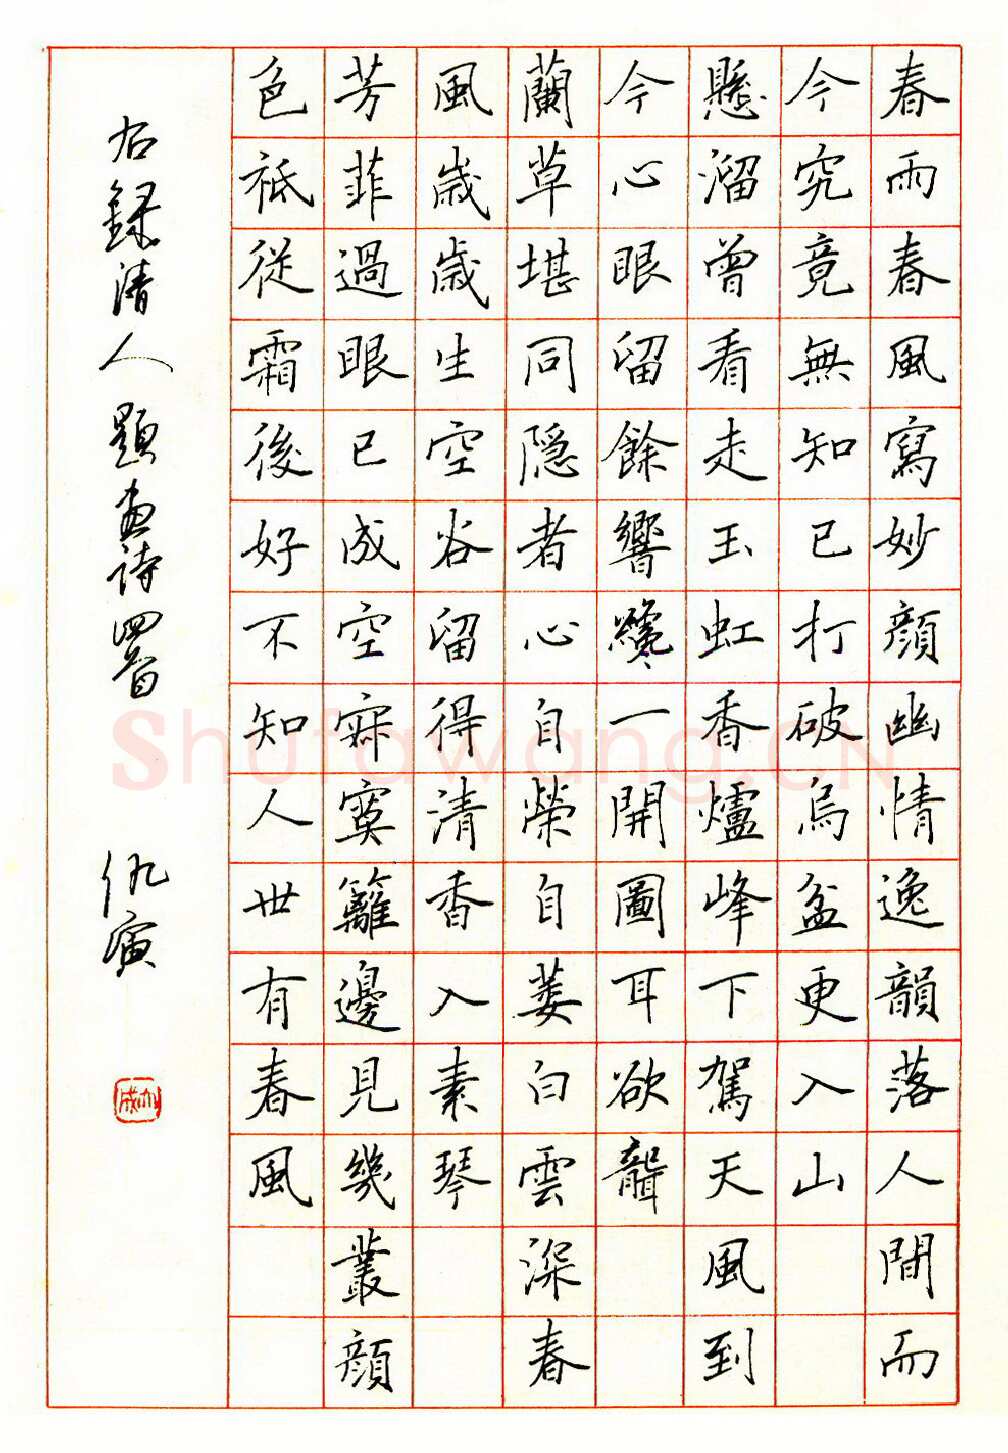 春雨春風寫妙顔幽情逸韻落人間而
今究竟無知己打破烏盆更入山
懸溜曾看走玉虹香爐峰下駕天風到
今心眼留餘響纔一開圖耳欲聾
蘭草堪同隐者心自榮自萎白雲深春
風歲歲生空谷留得清香入素琴
芳菲過眼已成空寂寞籬邊見幾叢顔
色祗從霜後好不知人世有春風
右録清人題畫詩四首 仇寅
Shufawang.CN